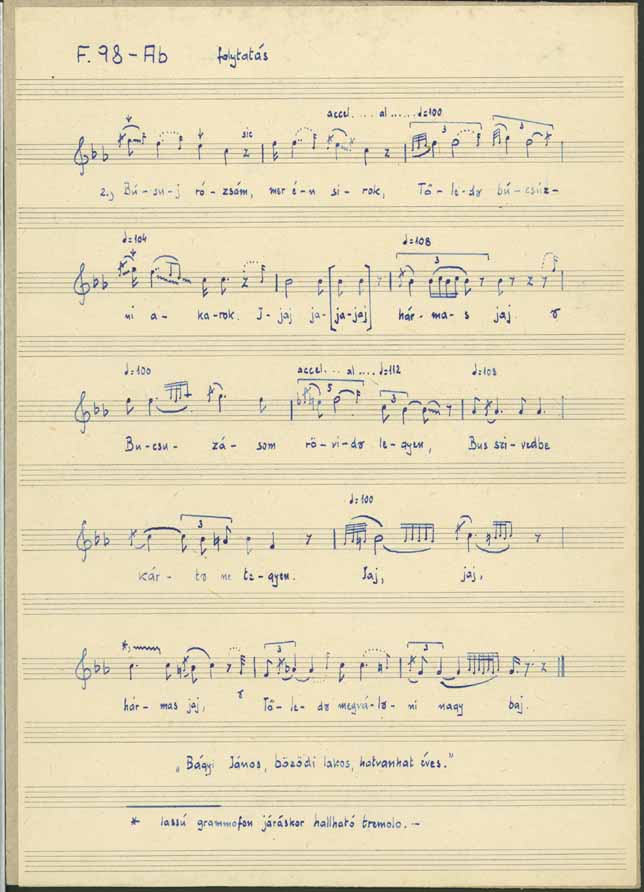 F. 98 – Ab folytatás
accel. ... al ..... ♩=100
sic
3 3
2., Bú-su-j ró-zsám, mer é-n si-rok, Tő-le-do bú-csúz-
♩=104 ♩=108
3
ni a-ka-rok. I-jaj ja-[ja-jaj] hár-ma-s jaj.
♩=100 accel. ... al .... ♩=112 ♩=108
5 3
Bu-csu-zá-som rö-vi-do le-gyen, Bus szi-vedbe
♩=100
3
kár-to ne te-gyen. Jaj, jaj,
*,
3 3
hár-mas jaj, Tő-le-do megvá-lo-ni nagy baj.
„Bágyi János, bözödi lakos, hatvanhat éves.”
* lassú grammofon járáskor hallható tremolo. –